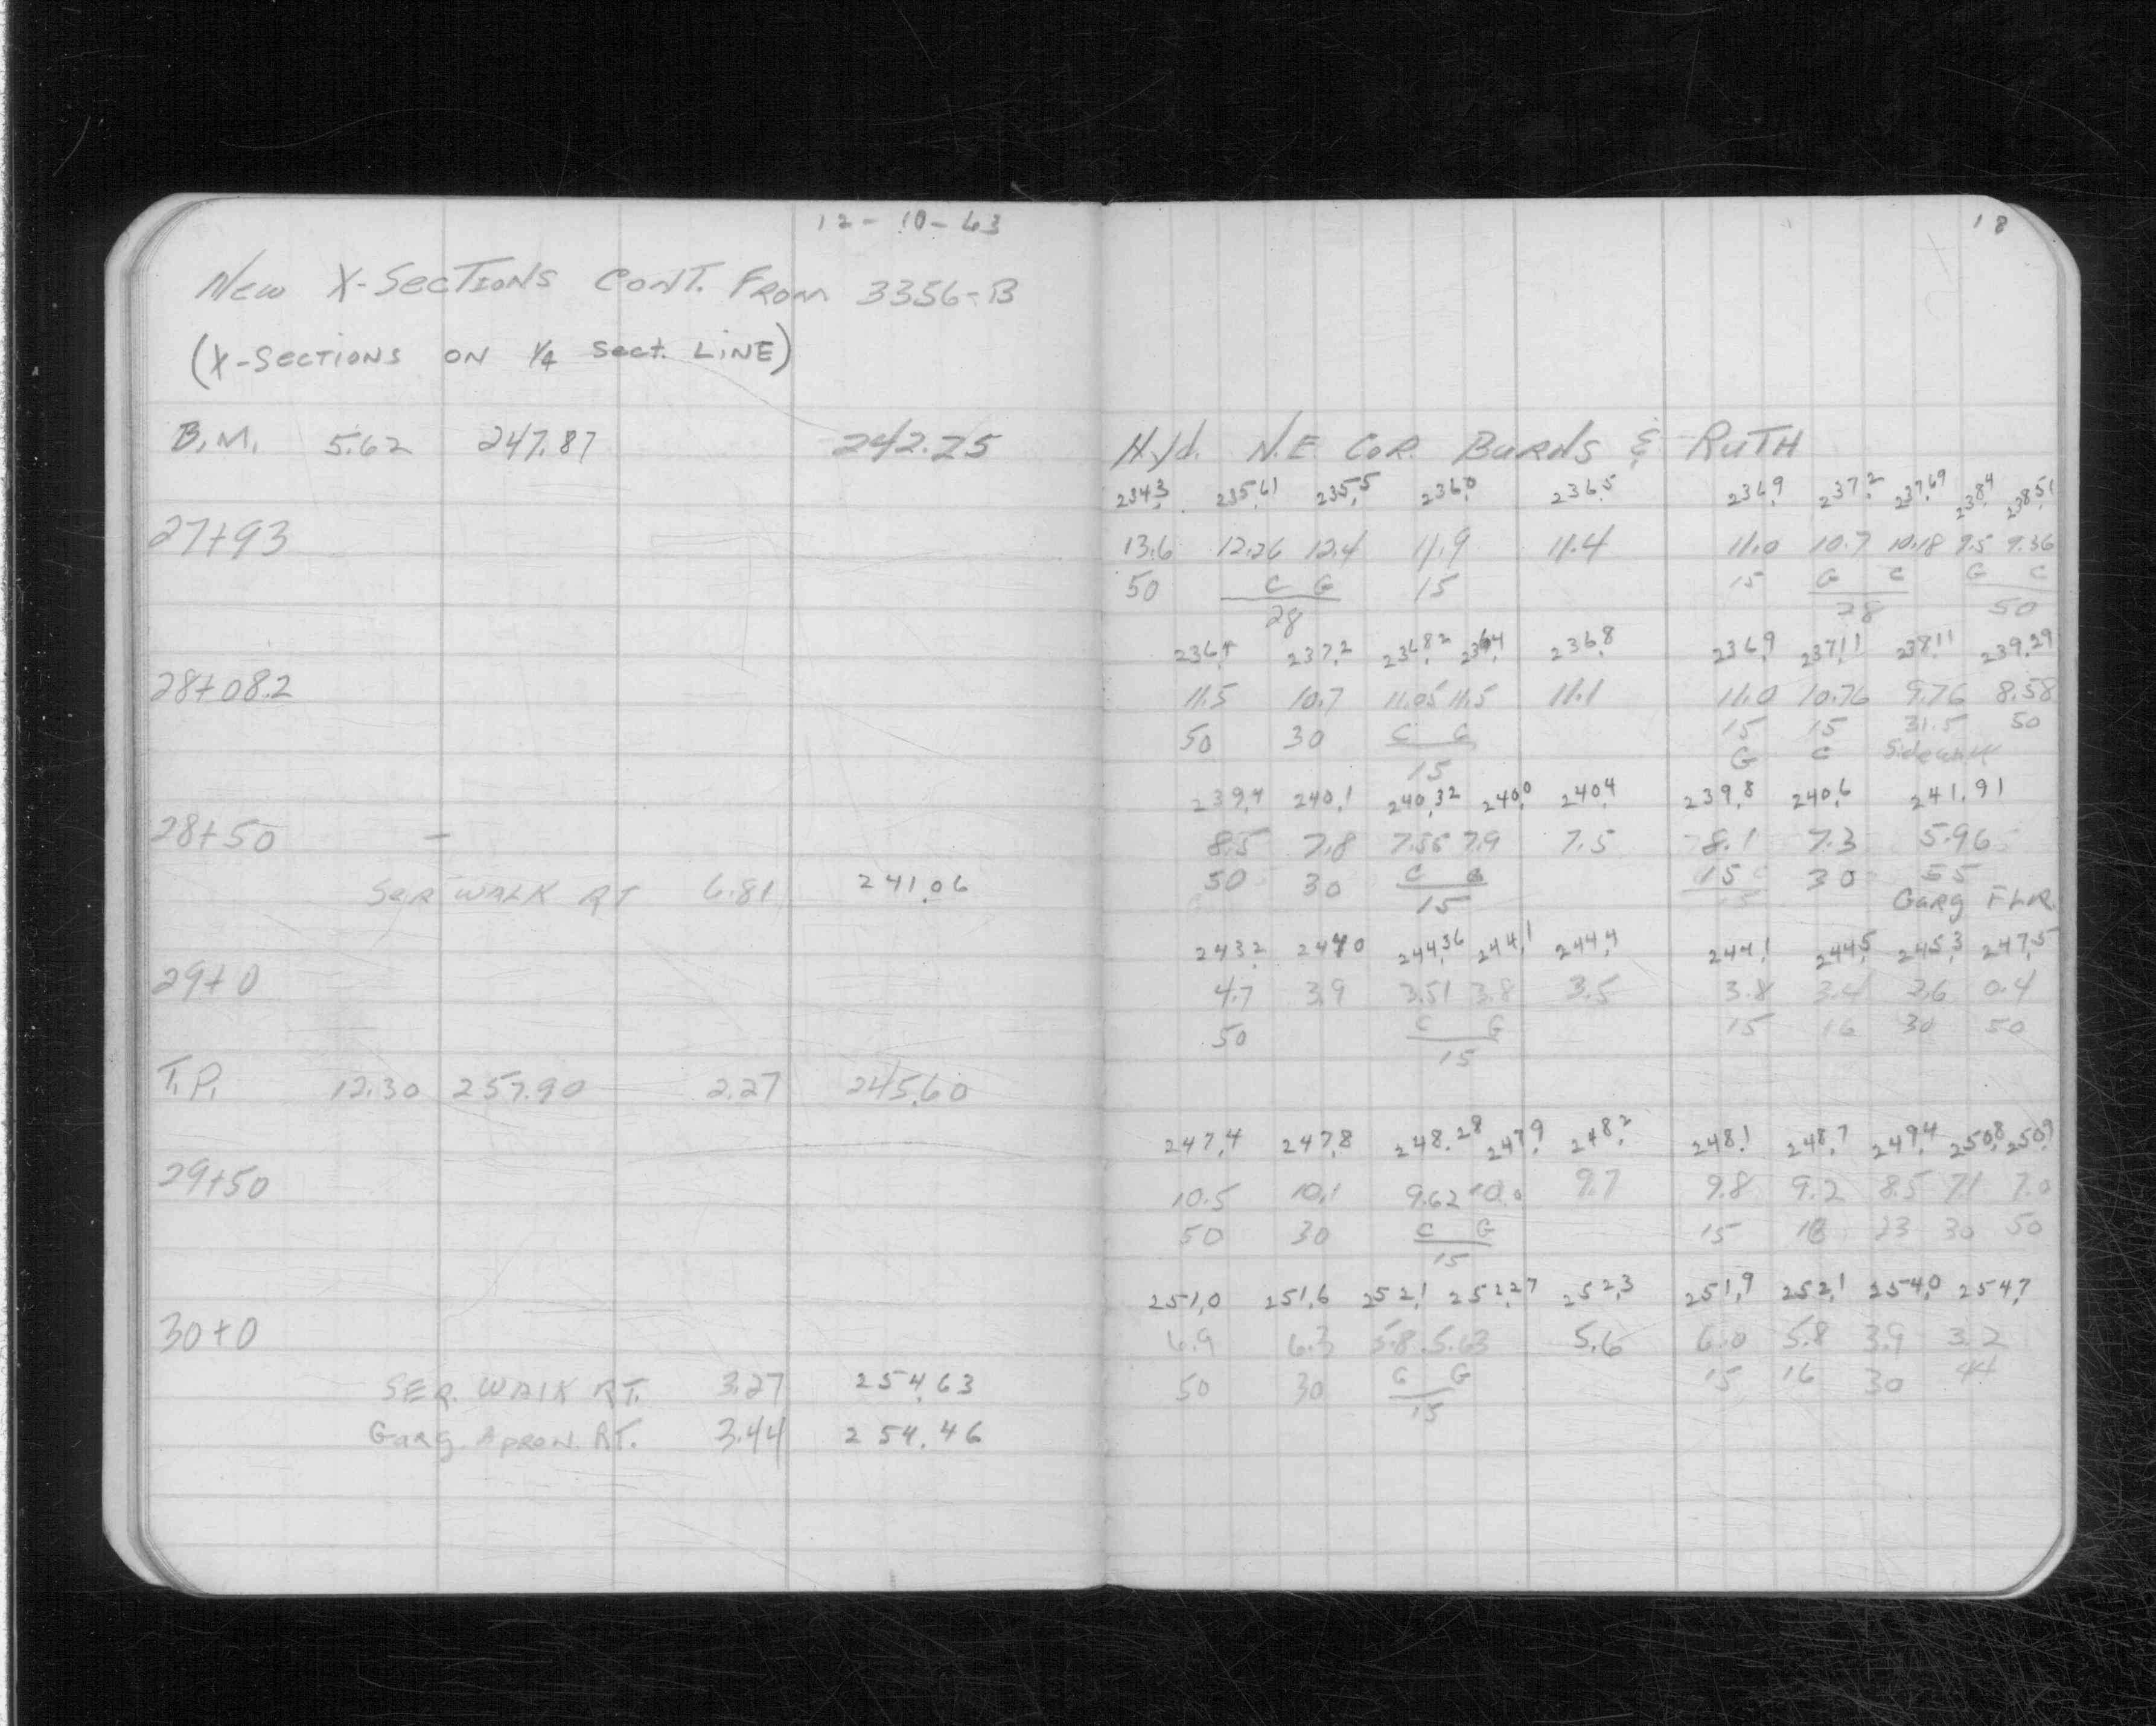 12-10-63
18
New X-Sections Cont. From 3356-B
(X-Sections on 1/4 Sect. Line)
B.M. 5.62 247.87 242.25 Hyd. N.E. Cor. Burns & Ruth
234.3 235.61 235.5 236.0 236.5 236.9 237.2 237.69 238.4 238.51
27+93 13.6 12.26 12.4 11.9 11.4 11.0 10.7 10.18 9.5 9.36
50 C G 15 15 G C G C
28 28 50
236.4 237.2 236.82 236.4 236.8 236.9 237.11 238.11 239.29
28+08.2 11.5 10.7 11.05 11.5 11.1 11.0 10.76 9.76 8.58
50 30 C G 15 15 31.5 50
15 G C Sidewalk
239.4 240.1 240.32 240.0 240.4 239.8 240.6 241.91
28+50 - 8.5 7.8 7.55 7.9 7.5 8.1 7.3 5.96
Ser Walk Rt 6.81 241.06 50 30 C G 15 30 55
15 Garg Flr.
243.2 244.0 244.36 244.1 244.4 244.1 244.5 245.3 247.5
29+0 4.7 3.9 3.51 3.8 3.5 3.8 3.4 2.6 0.4
50 C G 15 16 30 50
15
T.P. 12.30 257.90 2.27 245.60
247.4 247.8 248.28 247.9 248.2 248.1 248.7 249.4 250.8 250.9
29+50 10.5 10.1 9.62 10.0 9.7 9.8 9.2 8.5 7.1 7.0
50 30 C G 15 18 23 30 50
15
251.0 251.6 252.1 252.27 252.3 251.9 252.1 254.0 254.7
30+0 6.9 6.3 5.8 5.63 5.6 6.0 5.8 3.9 3.2
Ser. Walk Rt. 3.27 254.63 50 30 C G 15 16 30 44
15
Garg. Apron. Rt. 3.44 254.46